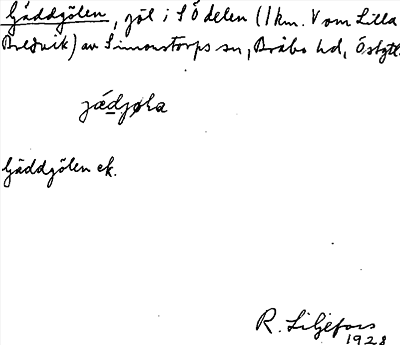 Gäddgölen, göl i SÖ delen (1 km. V om Lilla
Bredvik) av Simonstorps sn, Bråbo hd, Östgtl.
Gäddgölen ek.
R. Liljefors
1928